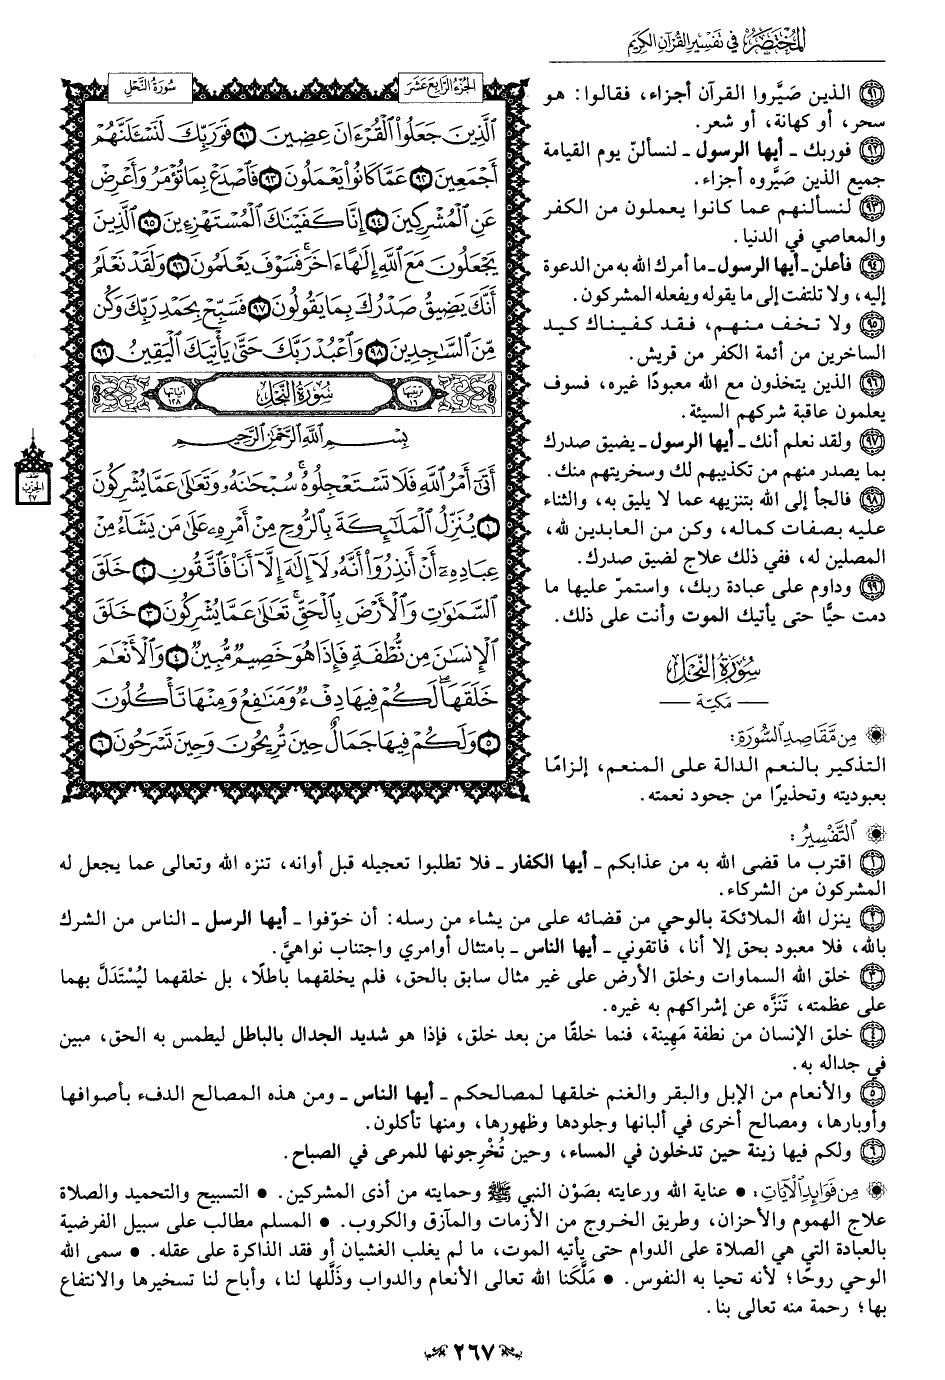 المختصر في تفسير القرآن الكريم
الجزء الرابع عشر
سورة النحل
الَّذِينَ جَعَلُوا الْقُرْءَانَ عِضِينَ ٩١ فَوَرَبِّكَ لَنَسْـَٔلَنَّهُمْ
أَجْمَعِينَ ٩٢ عَمَّا كَانُوا يَعْمَلُونَ ٩٣ فَاصْدَعْ بِمَا تُؤْمَرُ وَأَعْرِضْ
عَنِ الْمُشْرِكِينَ ٩٤ إِنَّا كَفَيْنَاكَ الْمُسْتَهْزِءِينَ ٩٥ الَّذِينَ
يَجْعَلُونَ مَعَ اللَّهِ إِلَٰهًا ءَاخَرَ فَسَوْفَ يَعْلَمُونَ ٩٦ وَلَقَدْ نَعْلَمُ
أَنَّكَ يَضِيقُ صَدْرُكَ بِمَا يَقُولُونَ ٩٧ فَسَبِّحْ بِحَمْدِ رَبِّكَ وَكُن
مِّنَ السَّاجِدِينَ ٩٨ وَاعْبُدْ رَبَّكَ حَتَّىٰ يَأْتِيَكَ الْيَقِينُ ٩٩
ترتيبها ١٦
سورة النحل
آياتها ١٢٨
بِسْمِ اللَّهِ الرَّحْمَٰنِ الرَّحِيمِ
أَتَىٰ أَمْرُ اللَّهِ فَلَا تَسْتَعْجِلُوهُ سُبْحَانَهُ وَتَعَالَىٰ عَمَّا يُشْرِكُونَ
١ يُنَزِّلُ الْمَلَائِكَةَ بِالرُّوحِ مِنْ أَمْرِهِ عَلَىٰ مَن يَشَاءُ مِنْ
عِبَادِهِ أَنْ أَنذِرُوا أَنَّهُ لَا إِلَٰهَ إِلَّا أَنَا فَاتَّقُونِ ٢ خَلَقَ
السَّمَاوَاتِ وَالْأَرْضَ بِالْحَقِّ تَعَالَىٰ عَمَّا يُشْرِكُونَ ٣ خَلَقَ
الْإِنسَانَ مِن نُّطْفَةٍ فَإِذَا هُوَ خَصِيمٌ مُّبِينٌ ٤ وَالْأَنْعَامَ
خَلَقَهَا لَكُمْ فِيهَا دِفْءٌ وَمَنَافِعُ وَمِنْهَا تَأْكُلُونَ
٥ وَلَكُمْ فِيهَا جَمَالٌ حِينَ تُرِيحُونَ وَحِينَ تَسْرَحُونَ ٦
نصف
الحزب
٢٧
٩١ الذين صَيَّروا القرآن أجزاء، فقالوا: هو
سحر، أو كهانة، أو شعر.
٩٢ فوربك ـ أيها الرسول ـ لنسألنّ يوم القيامة
جميع الذين صَيَّروه أجزاء.
٩٣ لنسألنهم عما كانوا يعملون من الكفر
والمعاصي في الدنيا.
٩٤ فأعلن ـ أيها الرسول ـ ما أمرك الله به من الدعوة
إليه، ولا تلتفت إلى ما يقوله ويفعله المشركون.
٩٥ ولا تخف منهم، فقد كفيناك كيد
الساخرين من أئمة الكفر من قريش.
٩٦ الذين يتخذون مع الله معبودًا غيره، فسوف
يعلمون عاقبة شركهم السيئة.
٩٧ ولقد نعلم أنك ـ أيها الرسول ـ يضيق صدرك
بما يصدر منهم من تكذيبهم لك وسخريتهم منك.
٩٨ فالجأ إلى الله بتنزيهه عما لا يليق به، والثناء
عليه بصفات كماله، وكن من العابدين لله،
المصلين له، ففي ذلك علاج لضيق صدرك.
٩٩ وداوم على عبادة ربك، واستمرّ عليها ما
دمت حيًّا حتى يأتيك الموت وأنت على ذلك.
سورة النحل
— مكية —
من مقاصد السورة:
التذكير بالنعم الدالة على المنعم، إلزامًا
بعبوديته وتحذيرًا من جحود نعمته.
التفسير:
١ اقترب ما قضى الله به من عذابكم ـ أيها الكفار ـ فلا تطلبوا تعجيله قبل أوانه، تنزه الله وتعالى عما يجعل له
المشركون من الشركاء.
٢ ينزل الله الملائكة بالوحي من قضائه على من يشاء من رسله: أن خوّفوا ـ أيها الرسل ـ الناس من الشرك
بالله، فلا معبود بحق إلا أنا، فاتقوني ـ أيها الناس ـ بامتثال أوامري واجتناب نواهيَّ.
٣ خلق الله السماوات وخلق الأرض على غير مثال سابق بالحق، فلم يخلقهما باطلًا، بل خلقهما ليُسْتَدَلَّ بهما
على عظمته، تَنَزَّه عن إشراكهم به غيره.
٤ خلق الإنسان من نطفة مَهِينة، فنما خلقًا من بعد خلق، فإذا هو شديد الجدال بالباطل ليطمس به الحق، مبين
في جداله به.
٥ والأنعام من الإبل والبقر والغنم خلقها لمصالحكم ـ أيها الناس ـ ومن هذه المصالح الدفء بأصوافها
وأوبارها، ومصالح أخرى في ألبانها وجلودها وظهورها، ومنها تأكلون.
٦ ولكم فيها زينة حين تدخلون في المساء، وحين تُخْرِجونها للمرعى في الصباح.
من فوائد الآيات: • عناية الله ورعايته بصَوْن النبي ﷺ وحمايته من أذى المشركين. • التسبيح والتحميد والصلاة
علاج الهموم والأحزان، وطريق الخروج من الأزمات والمآزق والكروب. • المسلم مطالب على سبيل الفرضية
بالعبادة التي هي الصلاة على الدوام حتى يأتيه الموت، ما لم يغلب الغشيان أو فقد الذاكرة على عقله. • سمى الله
الوحي روحًا؛ لأنه تحيا به النفوس. • مَلَّكَنا الله تعالى الأنعام والدواب وذَلَّلها لنا، وأباح لنا تسخيرها والانتفاع
بها؛ رحمة منه تعالى بنا.
٢٦٧